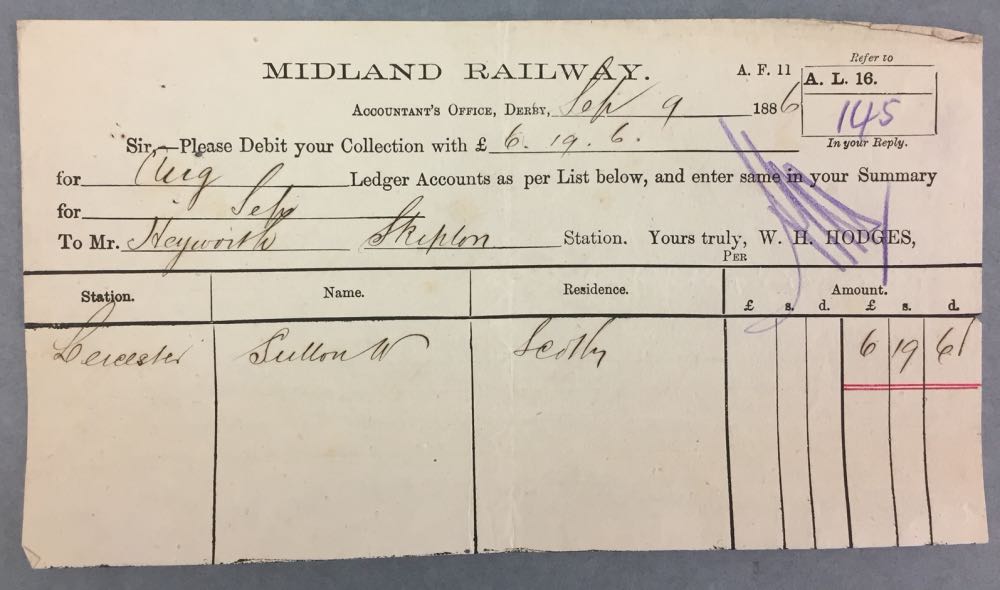 MIDLAND RAILWAY.
A. F. 11
Refer to
A. L. 16.
145
In your Reply.
Accountant's Office, Derby, Sep 9 1886
Sir,—Please Debit your Collection with £ 6. 19. 6.
for Aug Ledger Accounts as per List below, and enter same in your Summary
for Sep
To Mr. Heyworth Skipton Station. Yours truly, W. H. HODGES,
Per
Station. Name. Residence. Amount.
£ s. d. £ s. d.
Leicester Sutton W Scotby 6 19 6